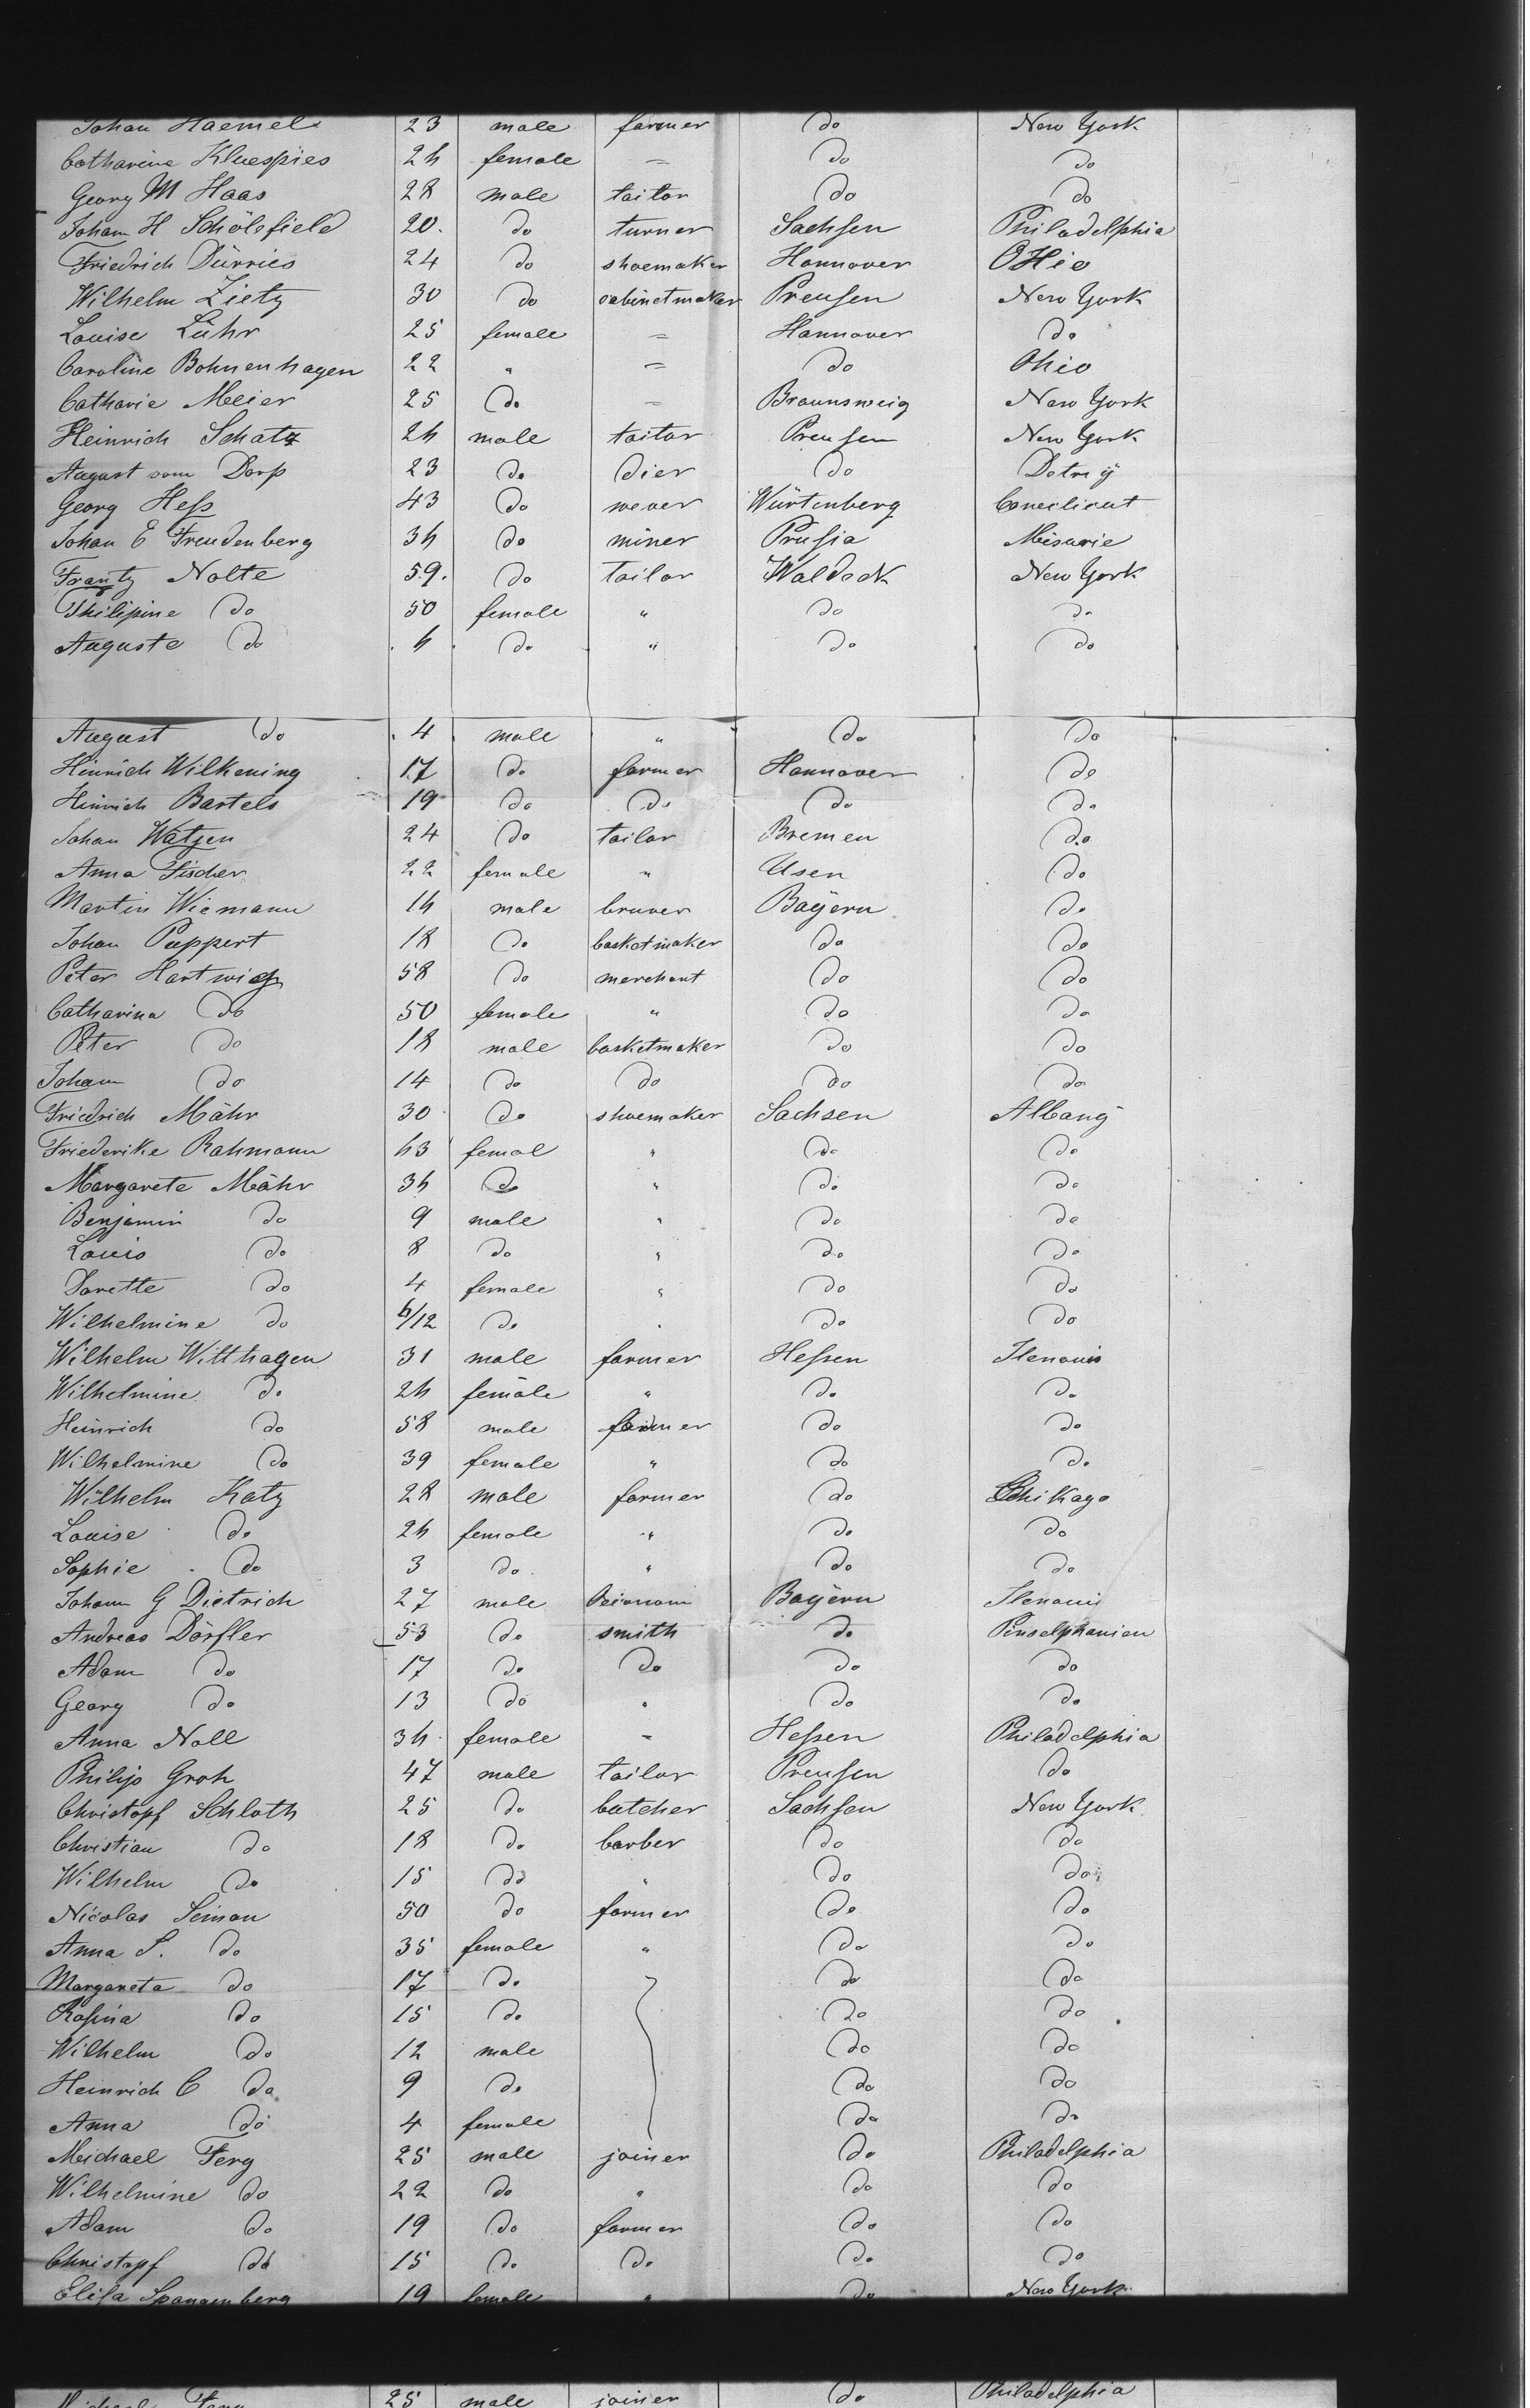 Johan Haemel 23 male farmer do New York
Catharine Kluespies 26 female = do do
Georg M Haas 28 male taitor do do
Joham H Schölefield 20. do turner Sachsen Philadelphia
Friedrich Dürries 24 do shoemaker Hannover OHio
Wilhelm Zietz 30 do cabinetmaker Preusen New York
Louise Lühr 25 female = Hannover do
Caroline Bohnenhagen 22 " = do Ohio
Catharie Meier 25 do = Braunsweig New York
Heinrich Schatz 26 male taitor Preusen New York
August vom Dorp 23 do dier do
Georg Heß 43 do wever Würtenberg Coneclicut
Johan E Freudenberg 36 do miner Prusia Misurie
Frantz Nolte 59. do tailor Waldeck New York
Philipine do 50 female " do do
Auguste do 6 do " do do
August do 4 male " do do
Hinrich Wilkening 17 do farmer Hannover do
Hinrich Bartels 19 do do do do
Johan Wätzen 24 do tailor Bremen do
Anna Fischer 22 female " Usen do
Martin Wiemann 16 male bruver Bayern do
Johan Puppert 18 do basketmaker do do
Peter Hartwig 58 do merchant do do
Catharina do 50 female " do do
Peter do 18 male basketmaker do do
Joham do 14 do do do do
Friedrich Mähr 30 do shoemaker Sachsen Albany
Friederike Rahmann 63 femal " do do
Margarete Mähr 36 do " do do
Benjamin do 9 male " do do
Louis do 8 do " do do
Dorette do 4 female " do do
Wilhelmine do 6/12 do " do do
Wilhelm Witthagen 31 male farmer Heßen Ilenouis
Wilhelmine do 26 female " do do
Heinrich do 58 male farmer do do
Wilhelmine do 39 female " do do
Wilhelm Katz 28 male farmer do Chikago
Louise do 26 female " do do
Sophie do 3 do " do do
Johann G Dietrich 27 male Bayern Ilenouis
Andreas Dörfler 53 do smith do Pinselphanien
Adam do 17 do do do do
Georg do 13 do " do do
Anna Noll 36 female = Heßen Philadelphia
Philip Groh 47 male tailor Preusen do
Christopf Schloth 25 do butcher Sachsen New York
Christian do 18 do barber do do
Wilhelm do 15 do " do do
Nicolas Seimon 50 do farmer do do
Anna S. do 35 female " do do
Margareta do 17 do do do
Rosina do 15 do do do
Wilhelm do 12 male do do
Heinrich C do 9 do do do
Anna do 4 female do do
Meichael Ferg 25 male joiner do Philadelphia
Wilhelmine do 22 do " do do
Adam do 19 do farmer do do
Christopf do 15 do do do do
Elisa Spangenberg 19 female " do New York
Michael Ferg 25 male joiner do Philadelphia